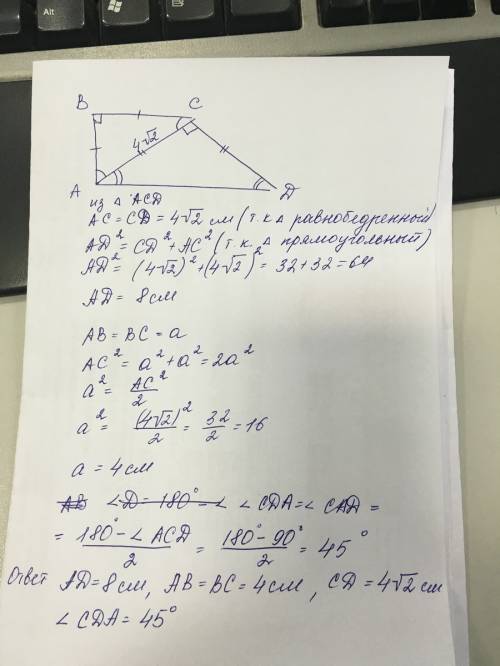 Alt
B
C
4√2
A
D
из △ ACD
AC = CD = 4√2 см (т.к △ равнобедренный)
AD² = CD² + AC² (т.к. △ прямоугольный)
AD² = (4√2)² + (4√2)² = 32 + 32 = 64
AD = 8 см
AB = BC = a
AC² = a² + a² = 2a²
a² = AC²/2
a² = (4√2)²/2 = 32/2 = 16
a = 4 см
AB ∠D = 180° - ∠ ∠CDA = ∠CAD =
= (180° - ∠ACD)/2 = (180° - 90°)/2 = 45°
Ответ AD = 8 см, AB = BC = 4 см, CD = 4√2 см
∠CDA = 45°